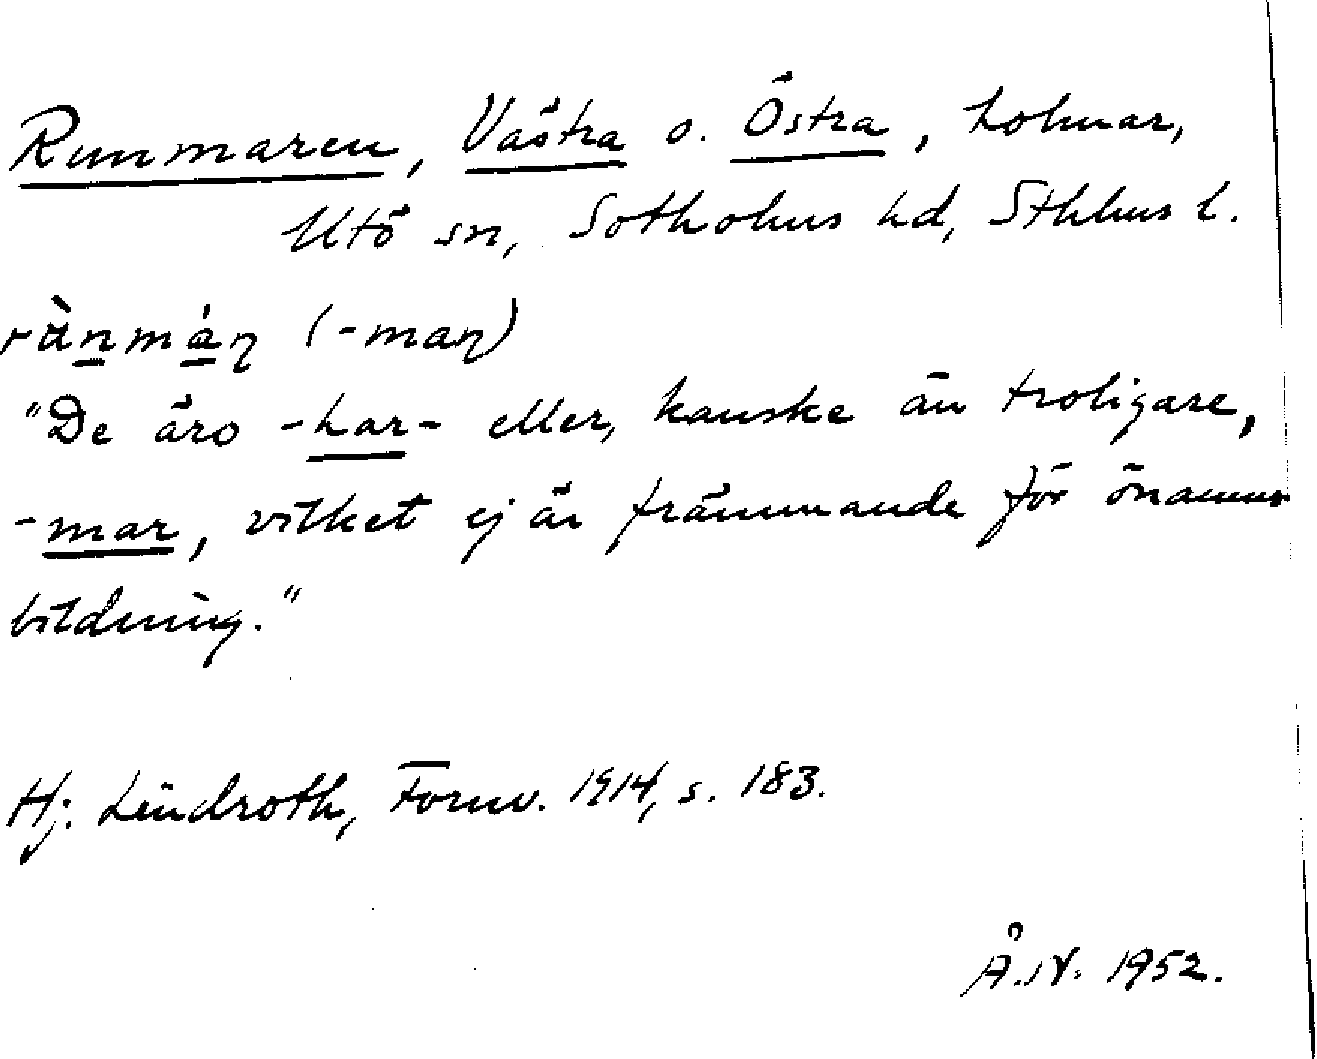 Runmaren, Västra o. Östra, holmar,
Utö sn, Sotholms hd, Sthlms l.
rùnmáɳ (-maɳ)
"De äro -har- eller, kanske än troligare,
-mar, vilket ej är främmande för önamns
bildning."
Hj. Lindroth, Fornv. 1914, s. 183.
Å.N. 1952.